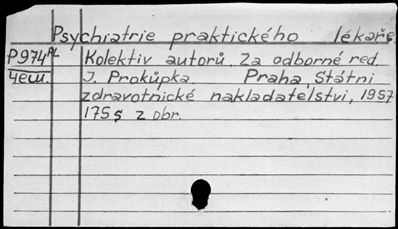 Psychiatrie praktického lékaře
P974 PL Kolektiv autorů. Za odborné red.
Чеш. J. Prokůpka. Praha, Státni
zdravotnické nakladatelstvi, 1957
175 s z obr.